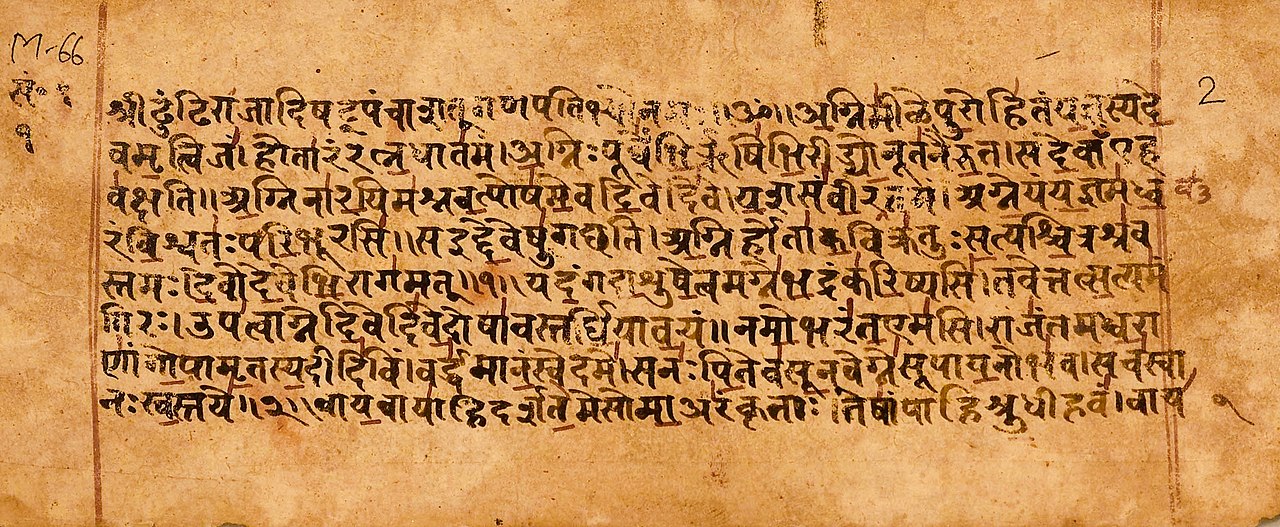 M-66
2
१
श्रीढुंढिराजादिषट्पंचाशतगणपतिभ्यो नमः॥ ॐ॥ अग्निमीळेपुरोहितंयज्ञस्यदे
वमृत्विजं। होतारंरत्नधातमं। अग्निःपूर्वेभिर्ऋषिभिरीड्योनूतनैरुत। सदेवाँएह
वक्षति॥ अग्निनारयिमश्नवत्पोषमेवदिवेदिवे। यशसंवीरवत्तमं। अग्नेयंयज्ञमध्व
रंविश्वतःपरिभूरसि॥ सइद्देवेषुगछति। अग्निर्होताकविक्रतुःसत्यश्चित्रश्रव
स्तमः। देवोदेवेभिरागमत्॥१॥ यदंगदाशुषेत्वमग्नेभद्रंकरिष्यसि। तवेत्तत्सत्यमं
गिरः। उपत्वाग्नेदिवेदिवेदोषावस्तर्धियावयं॥ नमोभरंतएमसि। राजंतमध्वरा
णांगोपामृतस्यदीदिविं। वर्द्धमानंस्वेदमे। सनःपितेवसूनवेग्नेसूपायनोभव। सचस्वा
नःस्वस्तये॥२॥ वायवायाहिदर्शतेमेसोमाअरंकृताः। तेषांपाहिश्रुधीहवं। वाय
१